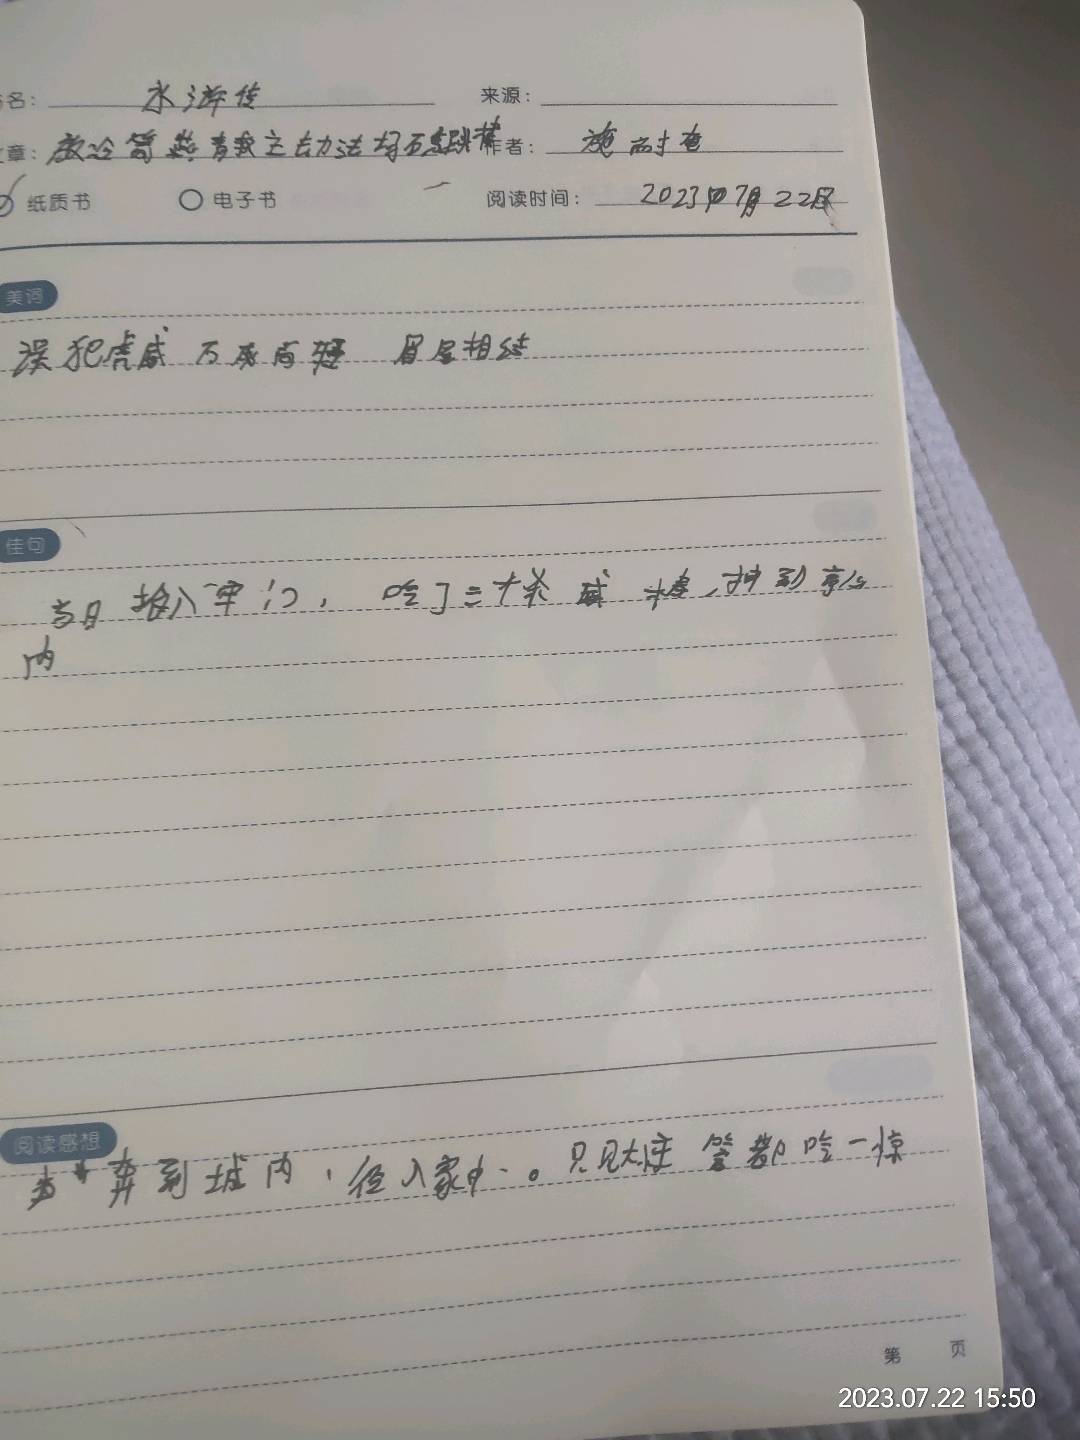 书名： 水浒传 来源：
章： 放冷箭燕青救主 劫法场石 跳楼 作者： 施耐庵
纸质书 电子书 阅读时间： 2023年7月22日
美词
误犯虎威 眉 相结
佳句
当日 入牢门， 吃了三十杀威棒，
内
阅读感想
奔到城内，径入家中。只见 都吃一惊
第 页
2023.07.22 15:50